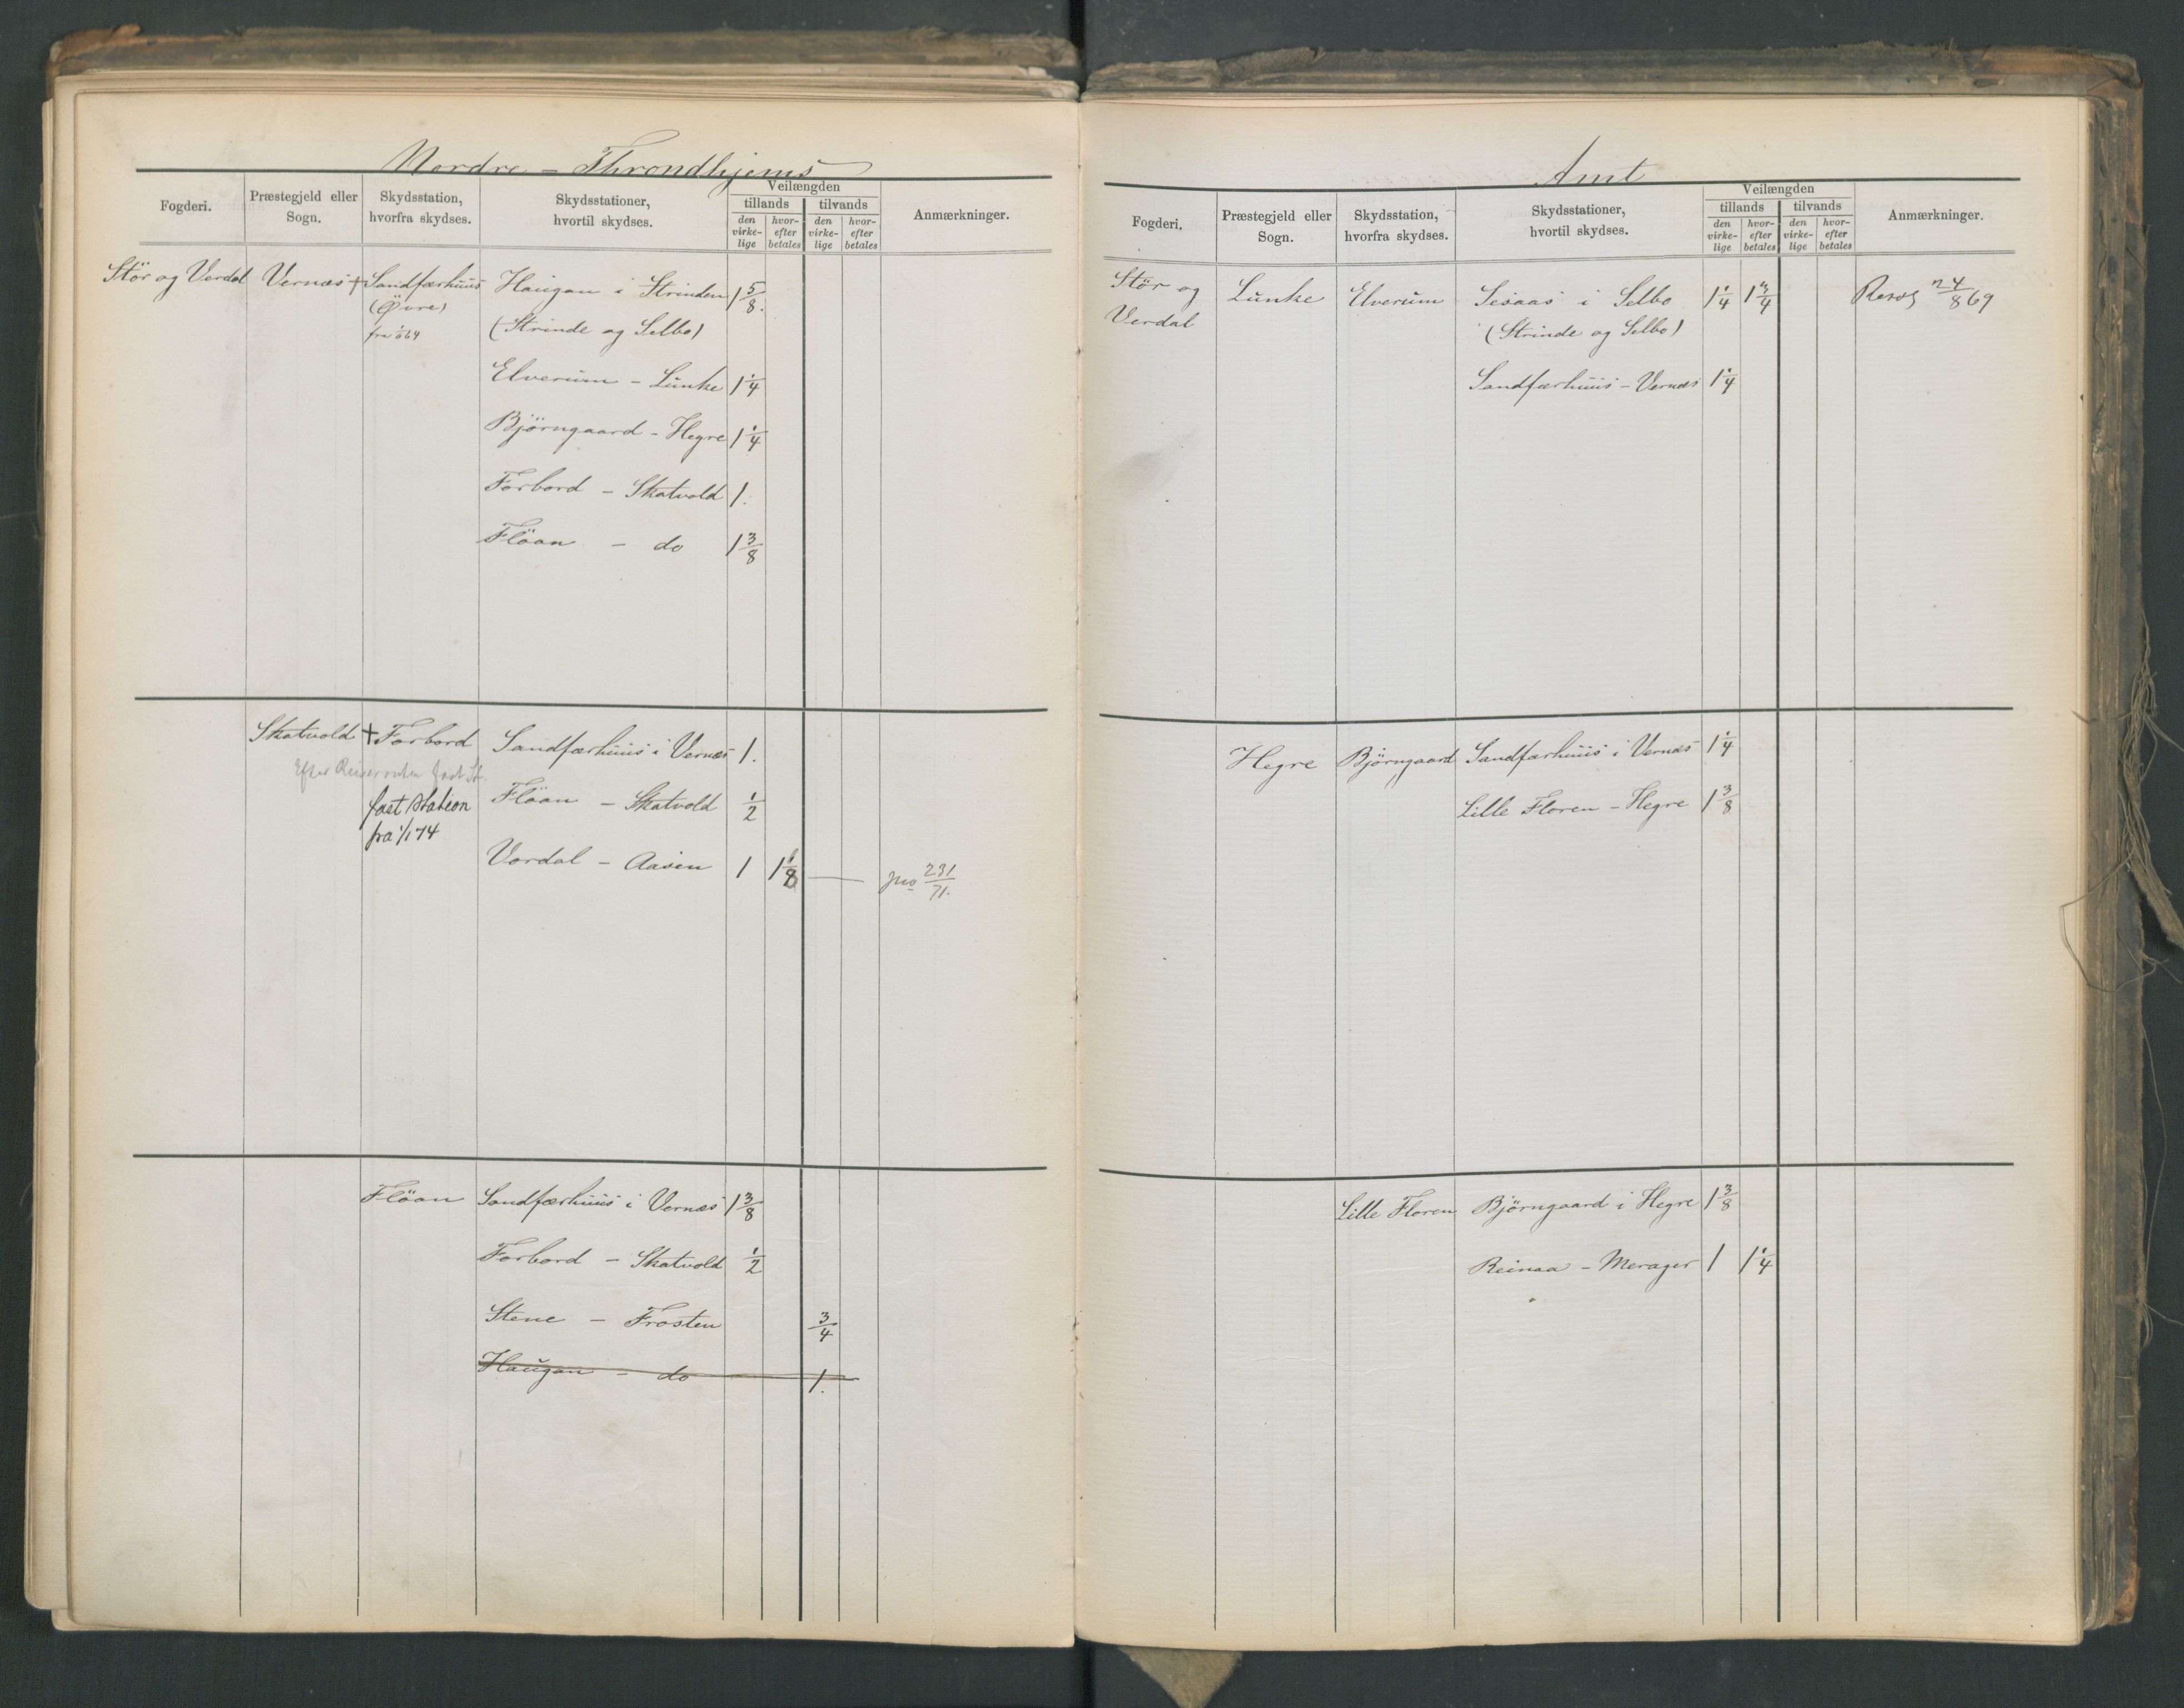 Nordre – Throndhjems
Fogderi. Præstegjeld eller Sogn. Skydsstation, hvorfra skydses. Skydsstationer, hvortil skydses. Veilængden Anmærkninger.
tillands tilvands
den virke-lige hvor-efter betales den virke-lige hvor-efter betales
Stör og Verdal Vernæs + Sandfærhuus Haugan i Strinden 1 5/8.
(Øvre) (Strinde og Selbo)
Elverum – Lunke 1 1/4
Björngaard – Hegre 1 1/4
Forbord – Skatvold 1.
Flöan – do 1 3/8
Skatvold + Forbord Sandfærhuus i Vernæs 1.
Efter Reiseruten fast St.
fast Station Flöan – Skatvold 1/2
fra 1/1 74
Vordal – Aasen 1 1 1/8 — 231/71.
Flöan Sandfærhuus i Vernæs 1 3/8
Forbord – Skatvold 1/2
Stene – Frosten 3/4
Haugan – do 1.
Amt
Fogderi. Præstegjeld eller Sogn. Skydsstation, hvorfra skydses. Skydsstationer, hvortil skydses. Veilængden Anmærkninger.
tillands tilvands
den virke-lige hvor-efter betales den virke-lige hvor-efter betales
Stör og Lunke Elverum Sesaas i Selbo 1 1/4 1 3/4 Resol 24/8 69
Verdal (Strinde og Selbo)
Sandfærhuus – Vernæs 1 1/4
Hegre Björngaard Sandfærhuus i Vernæs 1 1/4
Lille Floren – Hegre 1 3/8
Lille Floren Björngaard i Hegre 1 3/8
Reinaa – Merager 1 1 1/4